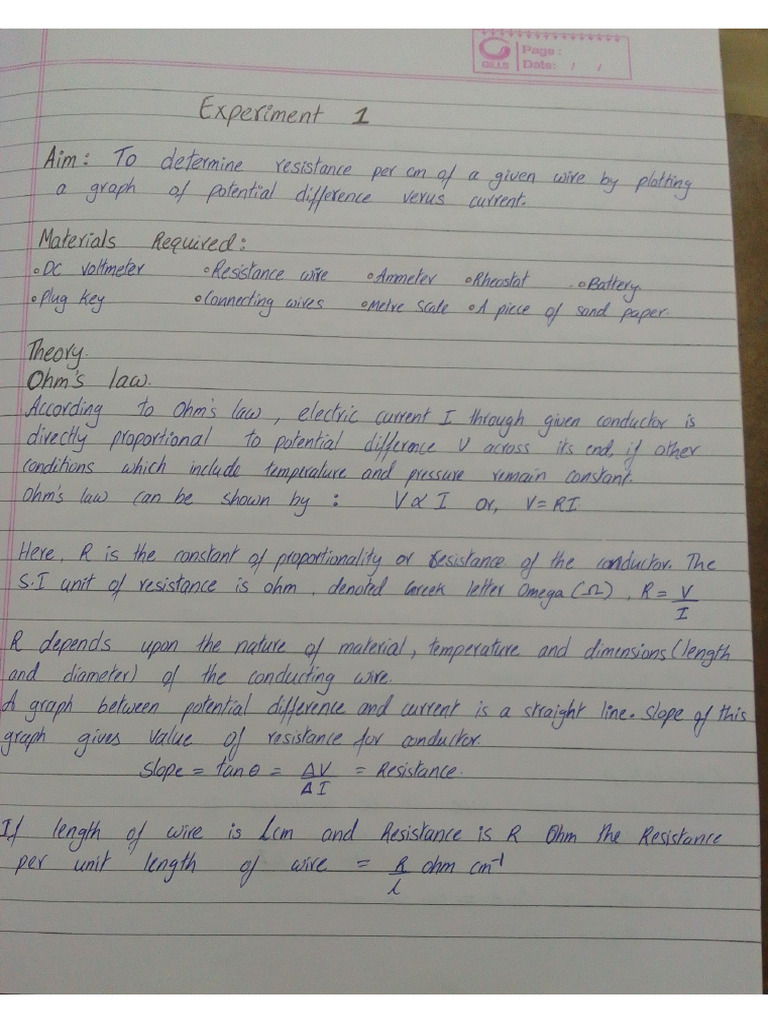 Page :
Date: / /
Experiment 1
Aim: To determine resistance per cm of a given wire by plotting
a graph of potential difference verus current.
Materials Required:
DC voltmeter Resistance wire Ammeter Rheostat Battery
Plug key Connecting wires Metre scale A piece of sand paper.
Theory.
Ohm's law.
According to Ohm's law, electric current I through given conductor is
directly proportional to potential difference V across its end, if other
conditions which include temperature and pressure remain constant.
Ohm's law can be shown by : V ∝ I or, V = RI.
Here, R is the constant of proportionality or Resistance of the conductor. The
S.I unit of resistance is ohm, denoted Greek letter Omega (Ω), R = V/I
R depends upon the nature of material, temperature and dimensions (length
and diameter) of the conducting wire.
A graph between potential difference and current is a straight line. Slope of this
graph gives value of resistance for conductor.
Slope = tan θ = ΔV/ΔI = Resistance.
If length of wire is l cm and Resistance is R Ohm the Resistance
per unit length of wire = R/l ohm cm⁻¹